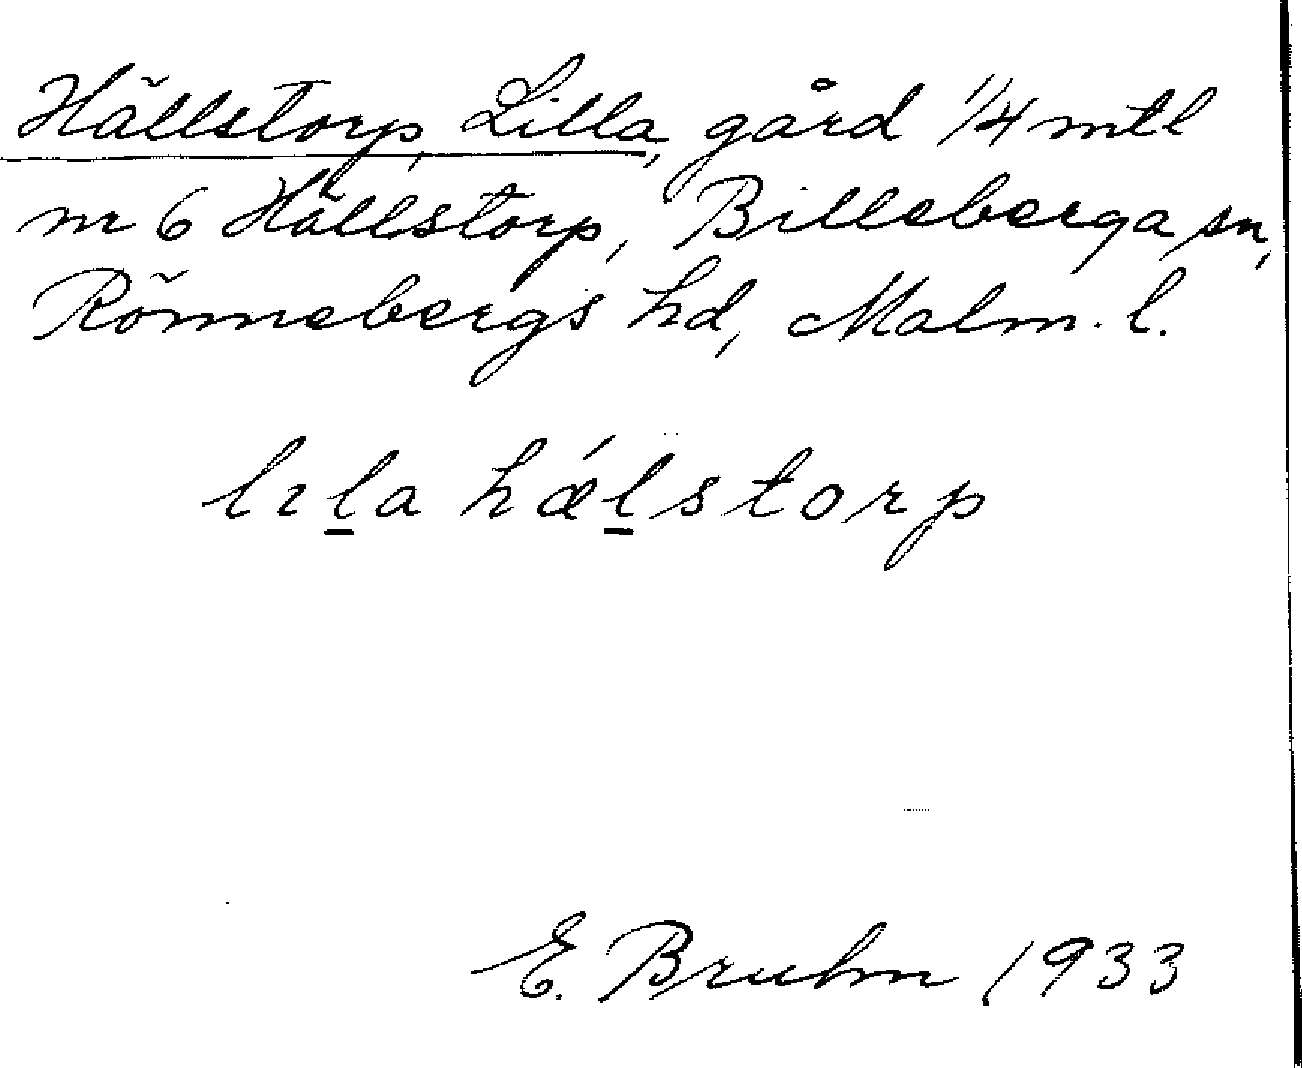 Hällstorp, Lilla, gård 1/4 mtl
nr 6 Hällstorp, Billeberga sn,
Rönnebergs hd, Malm. l.
lıl̲a hǽl̲storp
E. Bruhn 1933